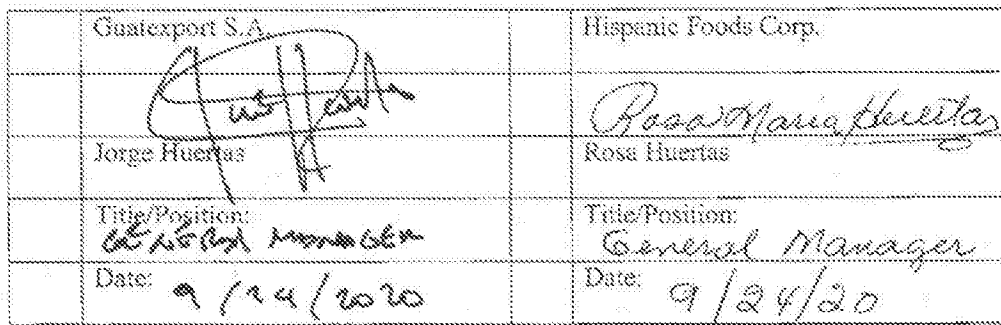 Guatexport S.A. Hispanic Foods Corp.
Rosa Maria Huertas
Jorge Huertas Rosa Huertas
Title/Position: Title/Position:
GENERAL MANAGER General Manager
Date: 9/24/2020 Date: 9/24/20